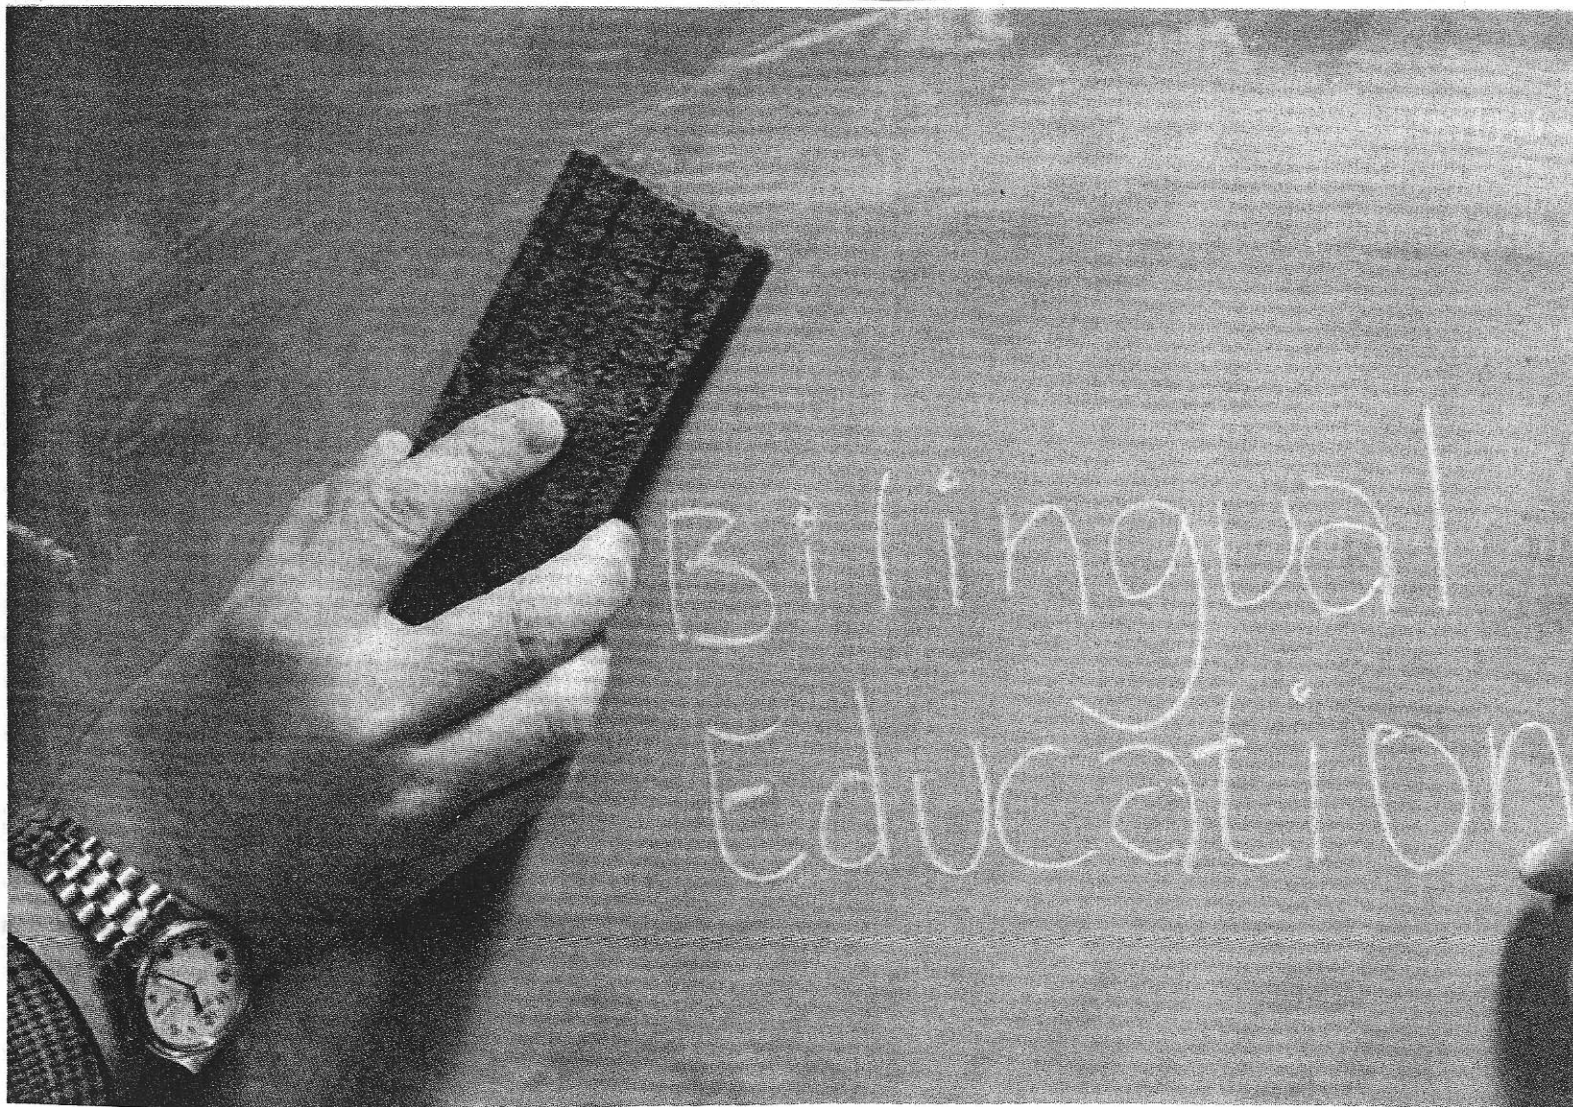 Bilingual
Education